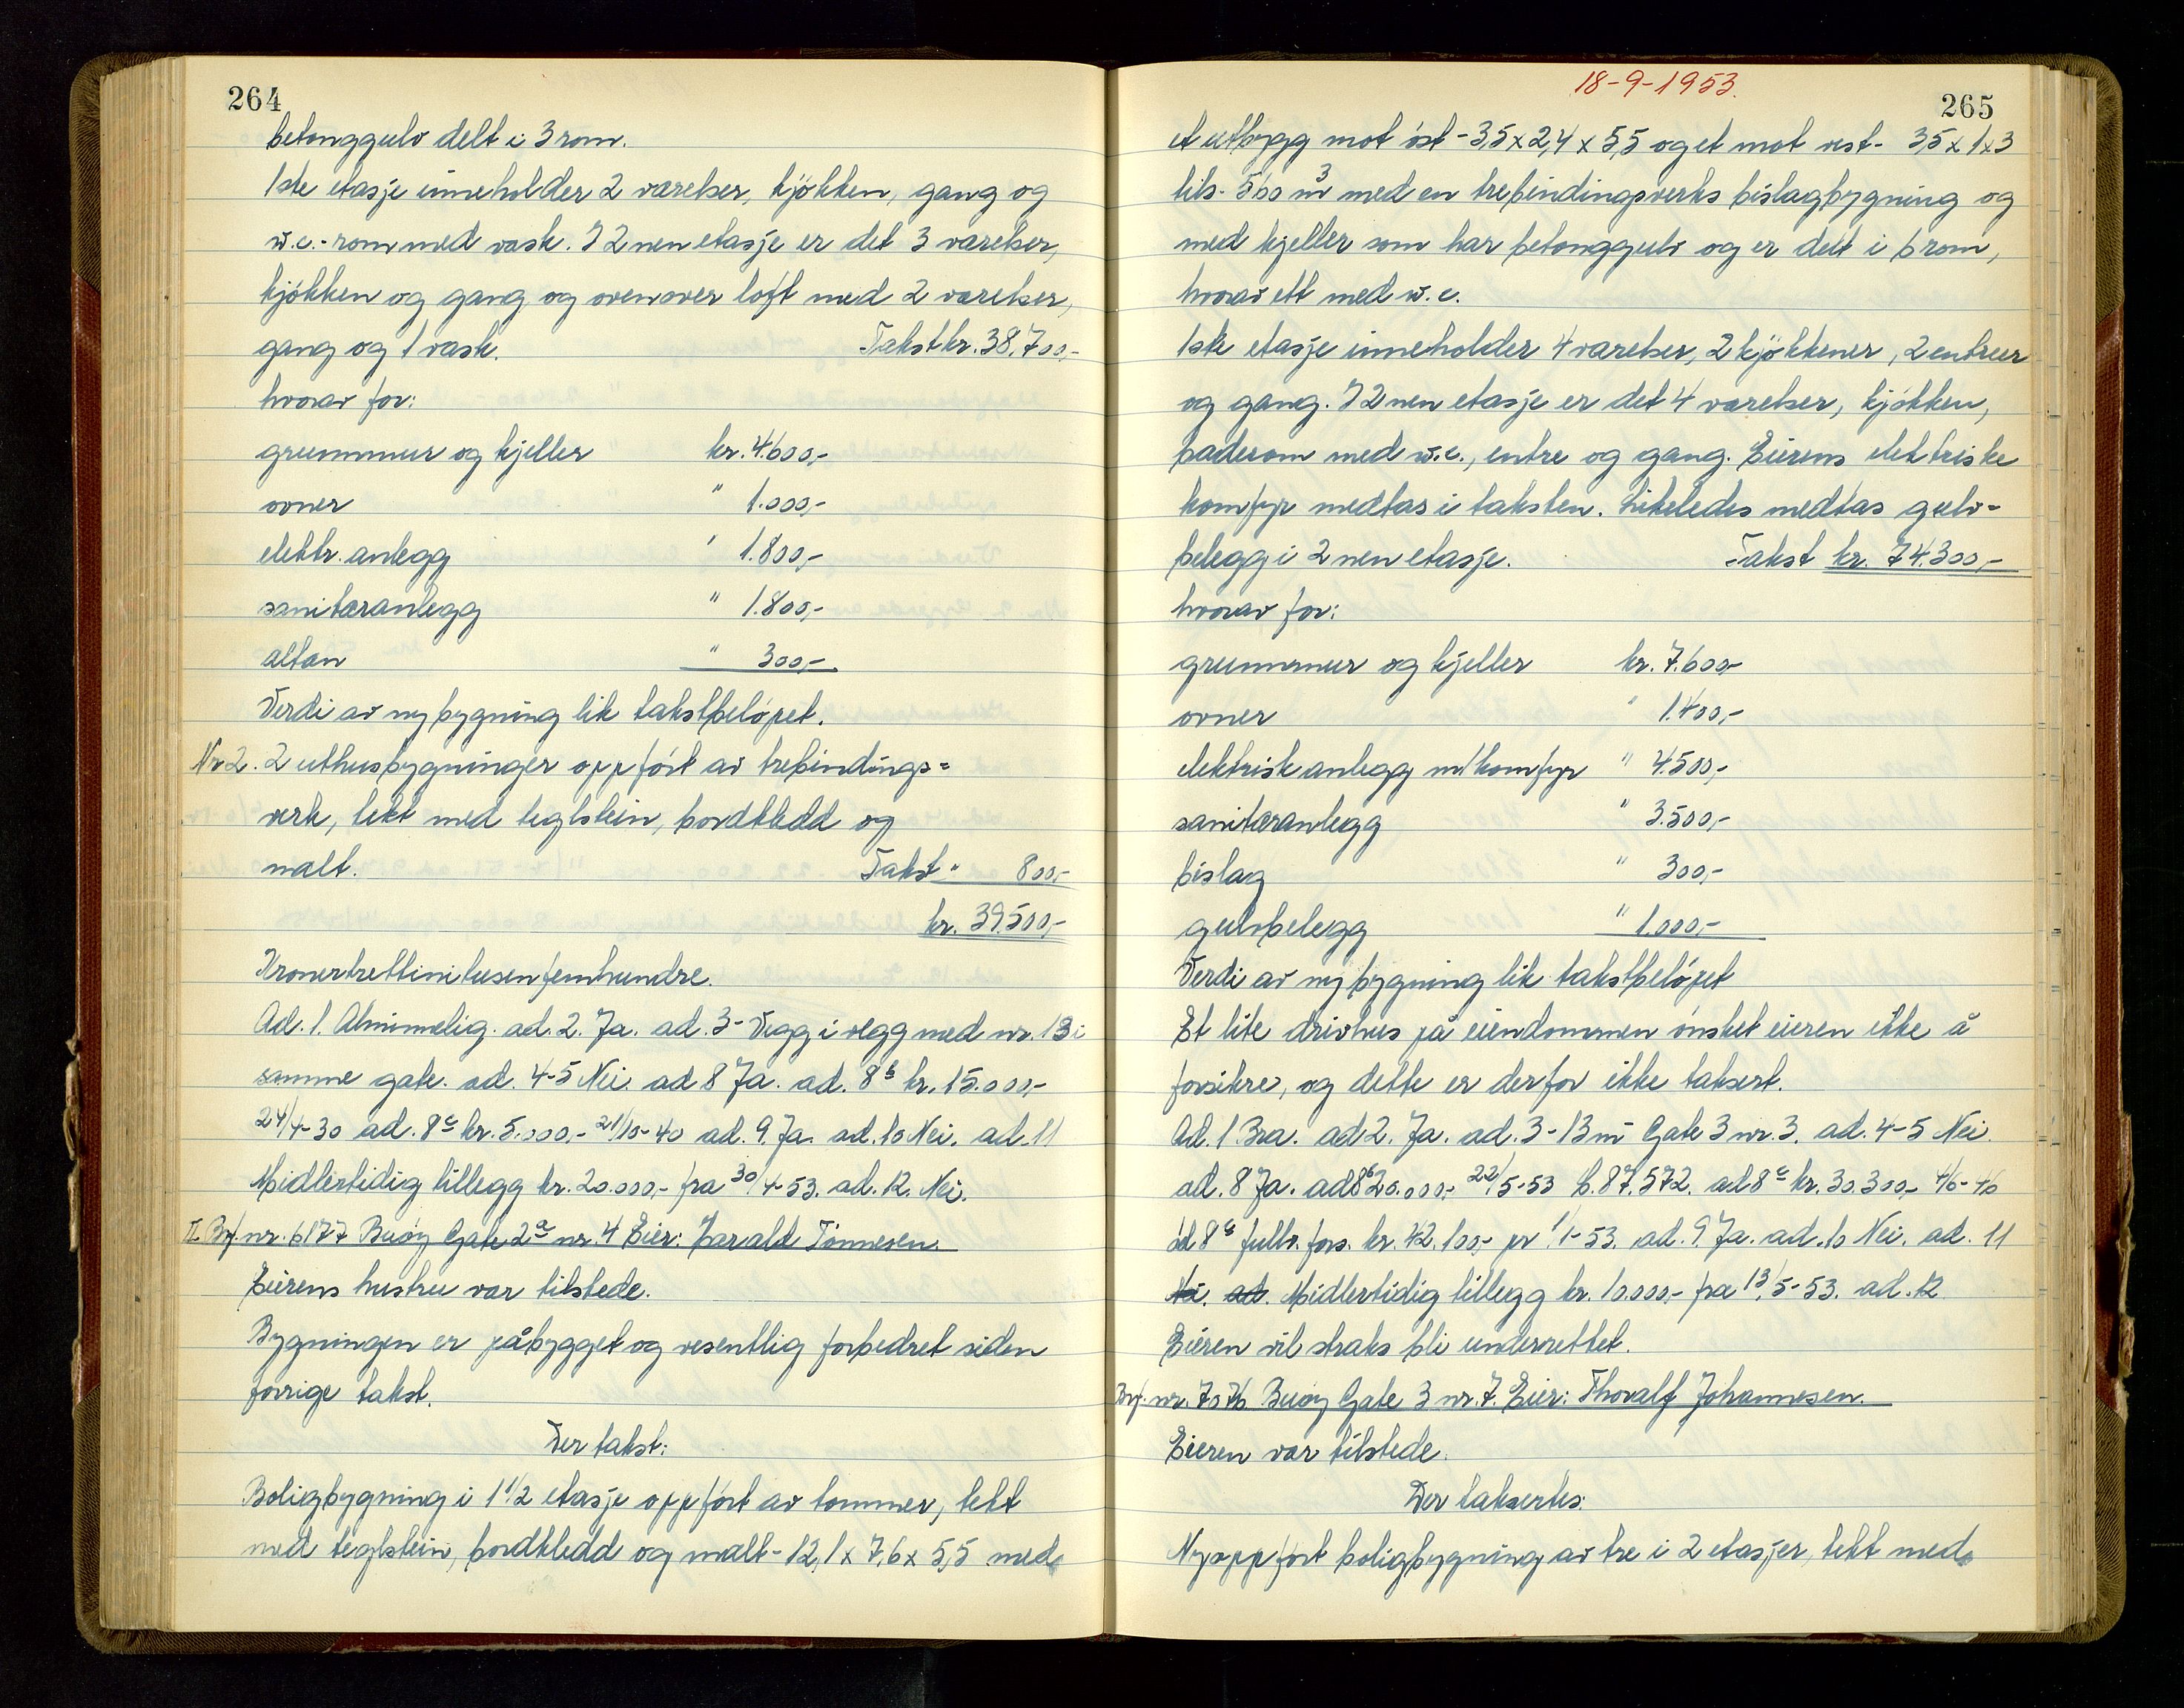 264
betonggulv delt i 3 rom.
1ste etasje inneholder 2 værelser, kjøkken, gang og
w.c.-rom med vask. I 2nen etasje er det 3 værelser,
kjøkken og gang og ovenover loft med 2 værelser,
gang og 1 vask. Takst kr. 38.700,-
hvorav for:
grunnmur og kjeller kr. 4.600,-
ovner " 1.000,-
elektr. anlegg " 1.800,-
sanitæranlegg " 1.800,-
altan " 300,-
Verdi av ny bygning lik takstbeløpet.
Nr 2. 2 uthusbygninger oppført av trebindings=
verk, tekt med teglstein, bordkledd og
malt. Takst " 800,-
kr. 39.500,-
Kronertrettinitusenfemhundre.
Ad. 1. Alminnelig. ad. 2. Ja. ad. 3- Vegg i vegg med nr. 13 i
samme gate. ad. 4-5 Nei. ad 8 Ja. ad. 8b kr. 15.000,-
24/4-30 ad. 8c kr. 5.000,- 21/10-40 ad. 9. Ja. ad. 10 Nei. ad. 11
Midlertidig tillegg kr. 20.000,- fra 30/4-53. ad. 12. Nei.
II Brf. nr. 6177 Buøy Gate 2a nr. 4 Eier: Harald Tønnesen.
Eierens hustru var tilstede.
Bygningen er påbygget og vesentlig forbedret siden
forrige takst.
Der takst:
Boligbygning i 1 1/2 etasje oppført av tømmer, tekt
med teglstein, bordkledd og malt - 12,1 x 7,6 x 5,5 med
18-9-1953.
265
et utbygg mot øst - 3,5 x 2,4 x 5,5 og et mot vest - 3,5 x 1 x 3
tils. 560 m3 med en trebindingsverks bislagbygning og
med kjeller som har betonggulv og er delt i 6 rom,
hvorav ett med w.c.
1ste etasje inneholder 4 værelser, 2 kjøkkener, 2 entreer
og gang. I 2nen etasje er det 4 værelser, kjøkken,
baderom med w.c., entre og gang. Eierens elektriske
komfyr medtas i taksten. Likeledes medtas gulv=
belegg i 2nen etasje. Takst kr. 74.300,-
hvorav for:
grunnmur og kjeller kr. 7.600,-
ovner " 1.400,-
elektrisk anlegg m/komfyr " 4.500,-
sanitæranlegg " 3.500,-
bislag " 300,-
gulvbelegg " 1.000,-
Verdi av ny bygning lik takstbeløpet
Et lite drivhus på eiendommen ønsket eieren ikke å
forsikre, og dette er derfor ikke taksert.
Ad. 1 Bra. ad 2. Ja. ad. 3- 13 m Gate 3 nr. 3. ad. 4-5 Nei.
ad. 8 Ja. ad 8b 20.000,- 22/5-53 b. 87.572. ad 8c kr. 30.300,- 4/6-46
ad 8c fullv. fors. kr. 42.100,- pr 1/1-53. ad. 9. Ja. ad. 10 Nei. ad. 11
Nei. ad. Midlertidig tillegg kr. 10.000,- fra 13/5-53. ad. 12
Eieren vil straks bli underrettet.
Brf. nr. 7076 Buøy Gate 3 nr. 7. Eier: Thoralf Johannesen.
Eieren var tilstede.
Der taksertes:
Nyoppført boligbygning av tre i 2 etasjer, tekt med